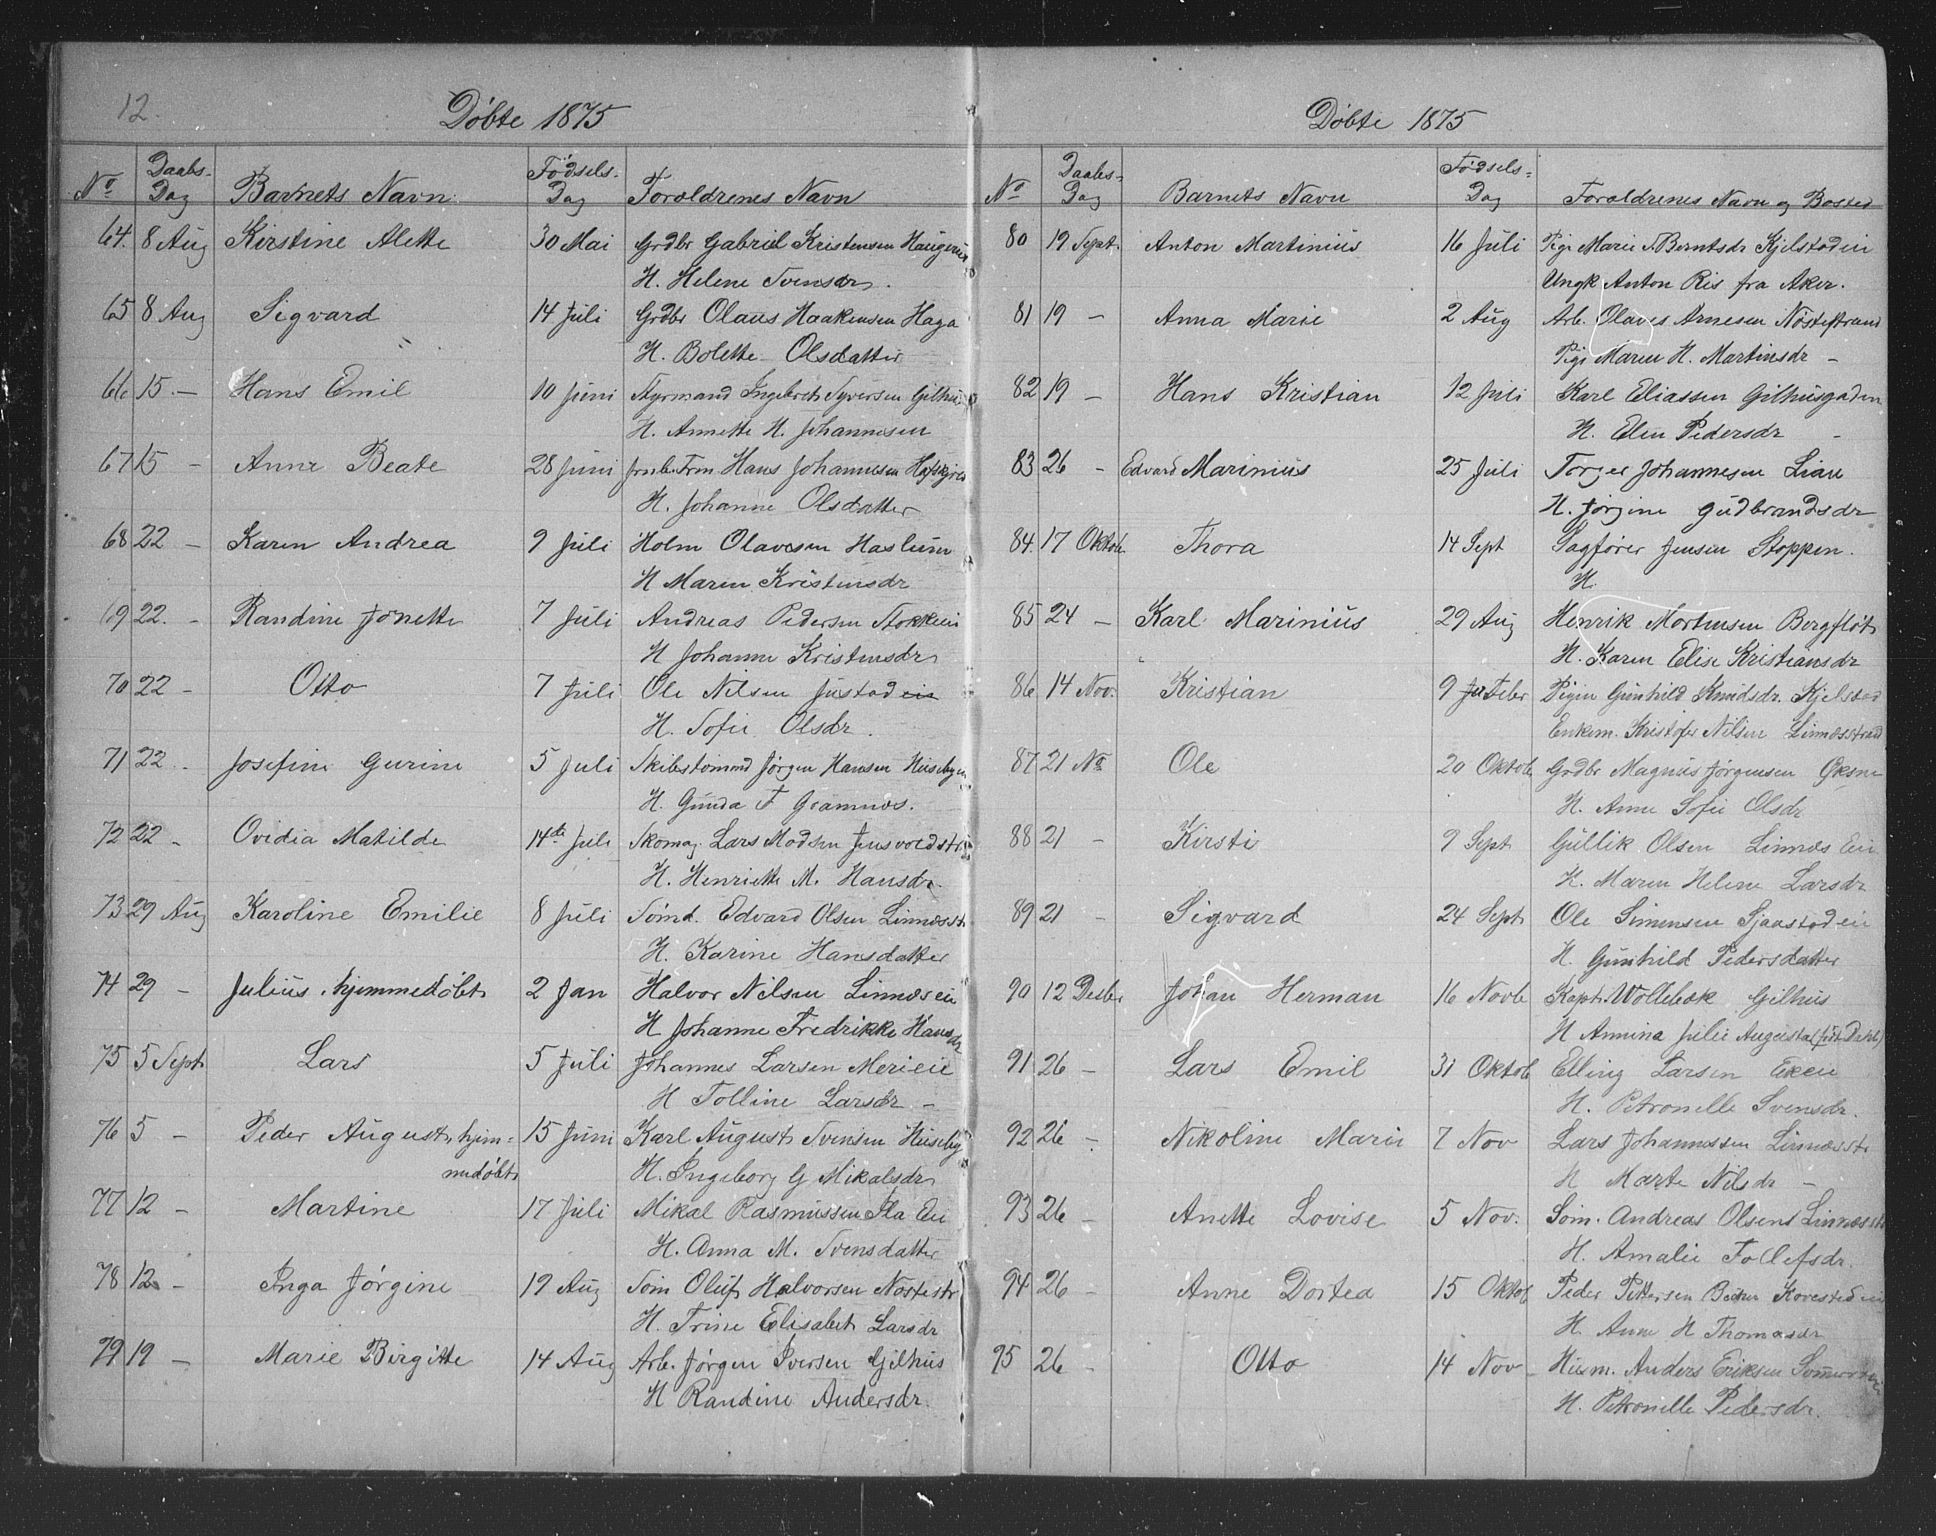 12.
Döbte 1875
No Daabs-Dag Barnets Navn. Födsels-Dag Foraldrenes Navn
64. 8 Aug Kirstine Alette 30 Mai Grdbr Gabriel Kristensen
H. Helene Svensdr.
65 8 Aug Sigvard 14 Juli Grdbr Olaus Haakensen Haga
H. Bolette Olsdatter
66 15 — Hans Emil 10 Juni Styrmand Ingebret Syversen Gilhus
H. Annette H. Johannesen
67 15 — Anne Beate 28 Juni Hans Johannesen
H. Johanne Olsdatter
68 22 — Karen Andrea 9 Juli Holm Olavesen Haslum
H Maren Kristensdr
69 22. — Randine Jonette 7 Juli Andreas Pedersen Stokkeii
H Johanne Kristensdr
70 22 — Otto 7 Juli Ole Nilsen Justadeie
H. Sofie Olsdr.
71 22 — Josefine Gurine 5 Juli Skibstømmd Jørgen Hansen
H. Gunda F Gramnæs.
72 22 — Ovidia Matilde 14de Juli Skomag. Lars Madsen
H. Henriette M. Hansdr.
73 29 Aug Karoline Emilie 8 Juli Sømd. Edvard Olsen Linnæsstr
H. Karine Hansdatter
74 29 — Julius, hjemmedøbt 2 Jan Halvor Nilsen Linnæseie
H Johanne Fredrikke Hansdr
75 5 Sept Lars 5 Juli Johannes Larsen Merieie
H Tolline Larsdr —
76 5 — Peder August, hjem= 15 Juni Karl August Svensen Huseby
medøbt H. Ingeborg G Mikalsdr
77 12 — Martine 17 Juli Mikal Rasmussen Ila Eie
H. Anna M. Svensdatter
78 12 — Inga Jørgine 19 Aug Søm Oluf Halvorsen Nøstestr
H. Trine Elisabet Larsdr
79 19 — Marie Birgitte 14 Aug Arb. Jørgen Iversen Gilhus
H Randine Andersdr.
Döbte 1875
No Daabs-Dag Barnets Navn Födsels-Dag Foraldrenes Navn og Bosted
80 19 Sept. Anton Martinius 16 Juli Pige Marie Berntsdr Kjelstadeie
Ungk Anton Ris fra Aker.
81 19 — Anna Marie 2 Aug Arb. Olaves Arnesen Nøstestrand
Pige Maren H. Martinsdr —
82 19 — Hans Kristian 12 Juli Karl Eliassen Gilhusgaden
H. Elen Pedersdr —
83 26 — Edvard Marinius 25 Juli Torger Johannesen Lian
H. Jørgine Gudbrandsdr
84. 17 Oktob Thora 14 Sept Sagfører Jensen Stoppen.
H.
85 24 — Karl Marinius 29 Aug Henrik Mortensen Bergfløt
H. Karen Elise Kristiansdr
86 14 Nov. Kristian 9 Febr Pigen Gunhild Knudsdr. Kjelstad
Enkem. Kristofer Nilsen Linnæsstrand
87 21 No Ole 20 Oktob Grdbr Magnus Jørgensen Øksne
H. Anne Sofie Olsdr
88 21 — Kirsti 9 Sept Gullik Olsen Linnæs Eie
H. Maren Helene Larsdr
89 21 — Sigvard 24 Sept Ole Simensen Sjaastadeie
H. Gunhild Pedersdatter
90 12 Desbr Johan Herman 16 Novb Kapt. Wollebæk Gilhus
H Annina Julie Augusta (født Dahl)
91 26 — Lars Emil 31 Oktob Elling Larsen Ekeie
H. Petronelle Svensdr.
92 26 — Nikoline Marie 7 Nov Lars Johannessen Linnæsstr
H Marte Nilsdr —
93 26 — Anette Lovise 5 Nov. Søm. Andreas Olsens Linnæsstr
H. Amalie Tollefsdr.
94 26 — Anne Dortea 15 Oktob Peder Pettersen Kovestadeie
H. Anne H Thomasdr
95 26 — Otto 14 Nov Husm. Anders Eriksen
H. Petronelle Pedersdr.